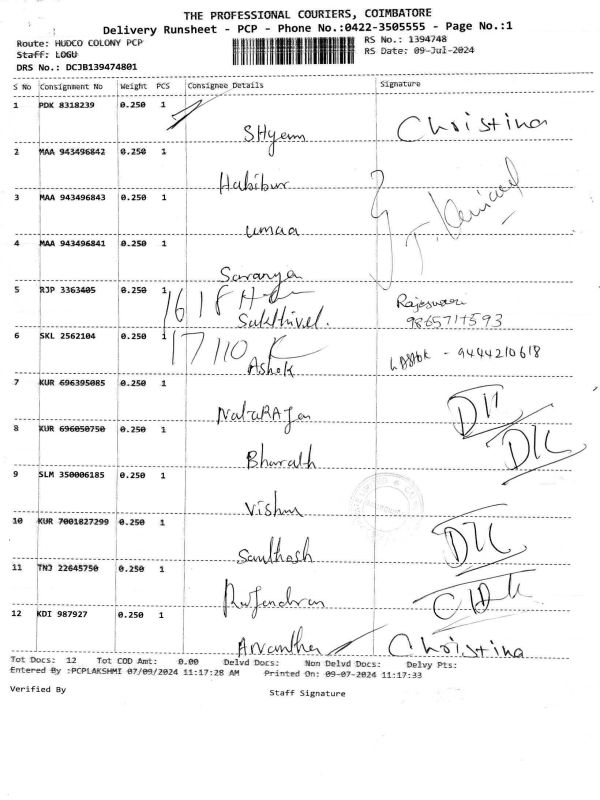 THE PROFESSIONAL COURIERS, COIMBATORE
Delivery Runsheet - PCP - Phone No.:0422-3505555 - Page No.:1
Route: HUDCO COLONY PCP
RS No.: 1394748
Staff: LOGU
RS Date: 09-Jul-2024
DRS No.: DCJB139474801
S No Consignment No Weight PCS Consignee Details Signature
1 PDK 8318239 0.250 1
SHyam Christina
2 MAA 943496842 0.250 1
Habibur
3 MAA 943496843 0.250 1
umaa
4 MAA 943496841 0.250 1
Saranya
5 RJP 3363405 0.250 1 1618
Rajeswari
Sakthivel. 9865711593
6 SKL 2562104 0.250 1 17110
Ashok - 9444210618
7 KUR 696395085 0.250 1
NataRAJan
8 KUR 696050750 0.250 1
Bharath
9 SLM 350006185 0.250 1
Vishnu
10 KUR 7001827299 0.250 1
Santhosh
11 TNJ 22645750 0.250 1
Rajendran
12 KDI 987927 0.250 1
Christina
Tot Docs: 12 Tot COD Amt: 0.00 Delvd Docs: Non Delvd Docs: Delvy Pts:
Entered By :PCPLAKSHMI 07/09/2024 11:17:28 AM Printed On: 09-07-2024 11:17:33
Verified By Staff Signature